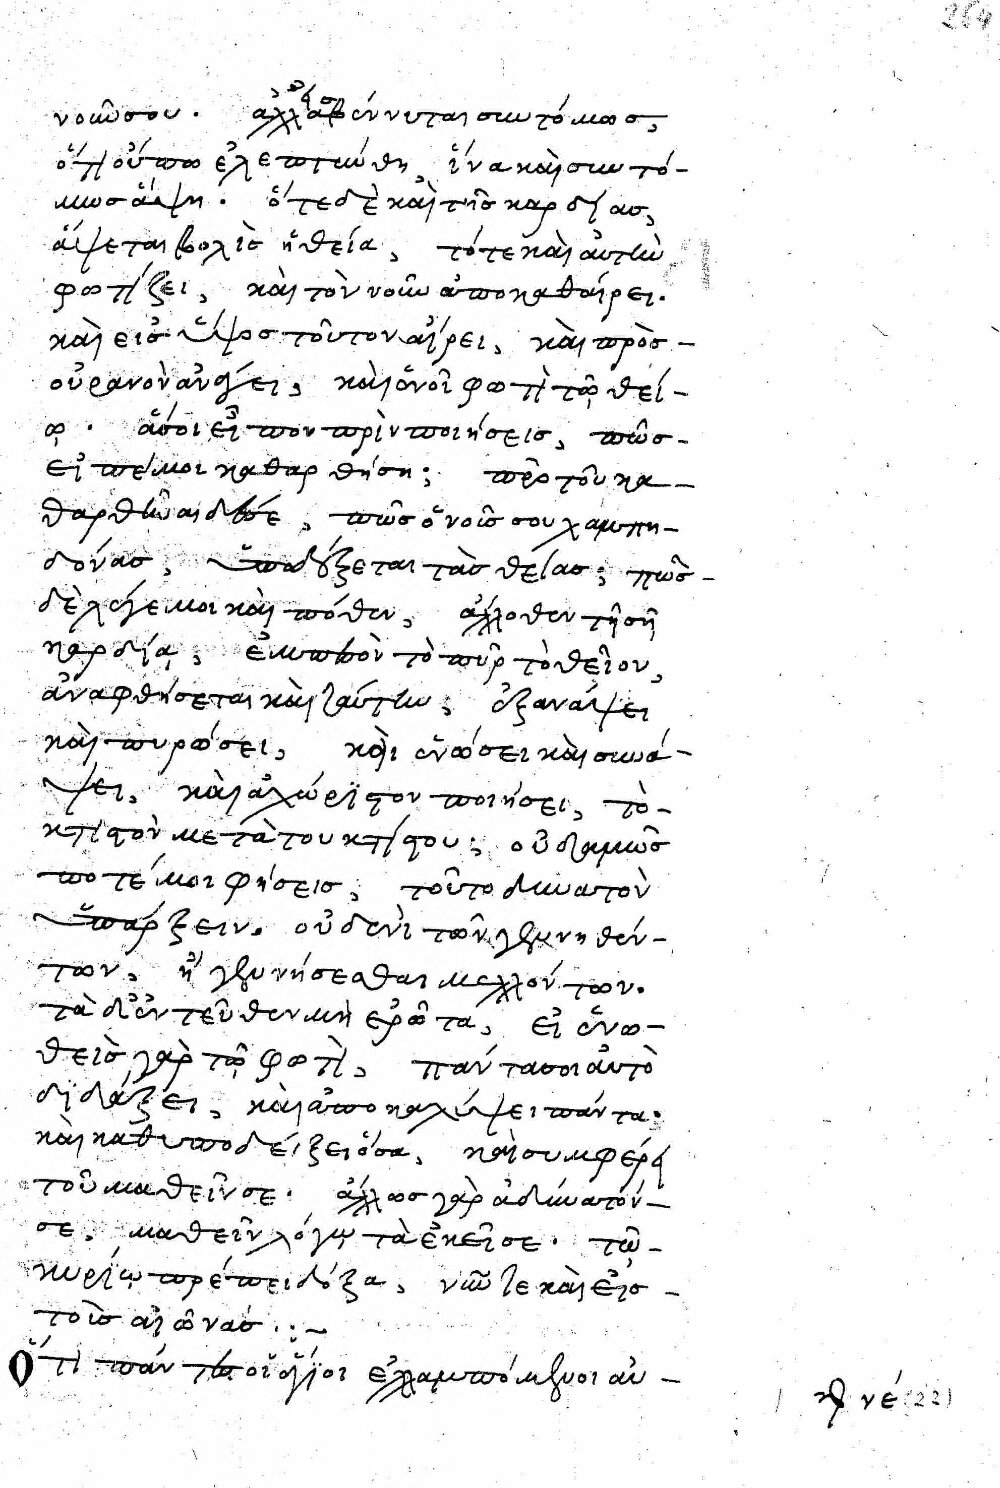 264
νοῦ σου. ἀλλὰ σβέννυται συντόμως,
ὅτι οὔπω ἐλεπτύνθη, ἵνα καὶ συντό-
μως ἅψῃ. ὅτε δὲ καὶ τῆς καρδίας,
ἅψεται βολὶς ἡ θεία, τότε καὶ αὐτὴν
φωτίζει, καὶ τὸν νοῦν ἀποκαθαίρει.
καὶ εἰς ὕψος τοῦτον αἴρει, καὶ πρὸς
οὐρανὸν ἀνάγει, καὶ ἑνοῖ φωτὶ τῷ θεί-
ῳ. εἶπον πρὶν ποιήσεις, πῶς
εἰπέ μοι καθαρθήσῃ; πρὸ τοῦ κα-
θαρθῆναι δέ σε, πῶς ὁ νοῦς σου λαμπη-
δόνας, ὑποδέξεται τὰς θείας; πῶς
δὲ λέγε μοι καὶ πόθεν, ἄλλοθεν τῇ σῇ
καρδίᾳ, ἐμπεσὸν τὸ πῦρ τὸ θεῖον,
ἀναφθήσεται καὶ ταύτην, ἐξανάψει
καὶ πυρώσει, καὶ ἑνώσει καὶ συνά-
ψει, καὶ ἀχώριστον ποιήσει, τὸ
κτιστὸν μετὰ τοῦ κτίστου; οὐδαμῶς
ποτέ μοι φήσεις, τοῦτο δυνατὸν
ὑπάρξειν. οὐδενὶ τῶν γεννηθέν-
των, ἢ γεννήσεσθαι μελλόντων.
τὰ δ' ἐντεῦθεν μὴ ἐρῶτα, εἰ ἑνω-
θεὶς γὰρ τῷ φωτὶ, πάντα σοι αὐτὸ
διδάξει, καὶ ἀποκαλύψει πάντα,
καὶ καθυποδείξει ὅσα, καὶ συμφέρει
τοῦ μαθεῖν σε. ἄλλως γὰρ ἀδύνατόν
σε, μαθεῖν λόγῳ τὰ ἐκεῖσε. τῷ
κυρίῳ πρέπει δόξα, νῦν τε καὶ εἰς
τοὺς αἰῶνας.
Ὅτι πάντες οἱ ἅγιοι ἐλλαμπόμενοι αὐ-
νέ (22)